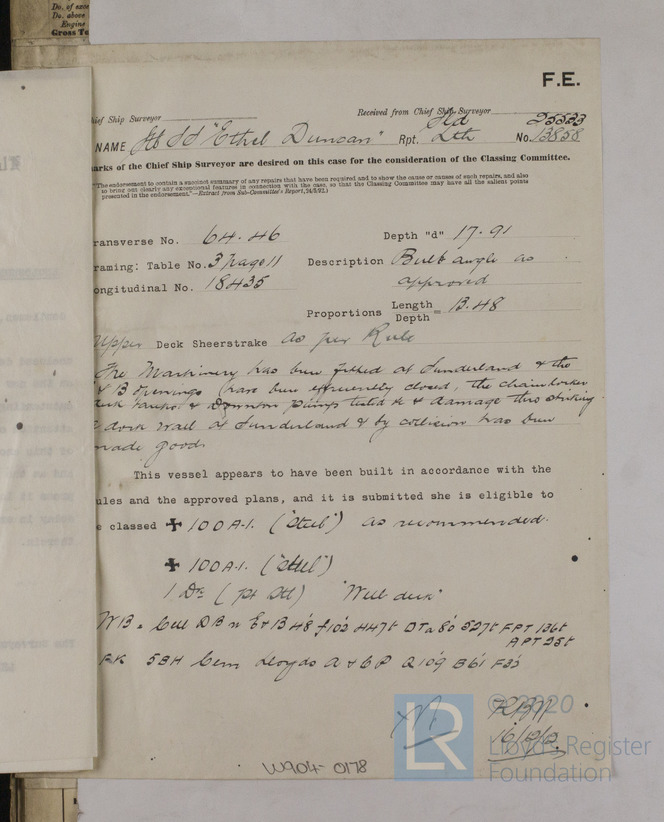 Do. of
Do. above
Engine
Gross
F.E.
hief Ship Surveyor
Received from Chief Ship Surveyor
Sld 25533
NAME "Ethel Duncan" Rpt. Lth No. 13858
arks of the Chief Ship Surveyor are desired on this case for the consideration of the Classing Committee.
"The endorsement to contain a succinct summary of any repairs that have been required and to show the cause or causes of such repairs, and also
to bring out clearly any exceptional features in connection with the case, so that the Classing Committee may have all the salient points
presented in the endorsement."—Extract from Sub-Committee's Report, 
ransverse No. 64.46 Depth "d" 17.91
raming: Table No. 3 page 11 Description Bulb angle as
approved
ongitudinal No. 18435
Proportions Length/Depth = 13.48
Upper Deck Sheerstrake as per Rule
The Machinery has been fitted at Sunderland & the
& B openings have been efficiently closed, the chain locker
tanks & pumps tested & damage thro striking
dock wall at Sunderland & by collision has been
made good.
This vessel appears to have been built in accordance with the
ules and the approved plans, and it is submitted she is eligible to
e classed ✠ 100A.1. ("Steel") as recommended.
✠ 100A.1. ("Steel")
1 Dk (pt Stl) "Well deck"
WB = Cell DB u E&B 48' f 102' 447t DTa 80' 527t FPT 136t
APT 25t
FK 5BH Cem Lloyds A & CP Q 109' B61' F33'
© 2020
LR
Lloyd's Register
Foundation
W904-0178